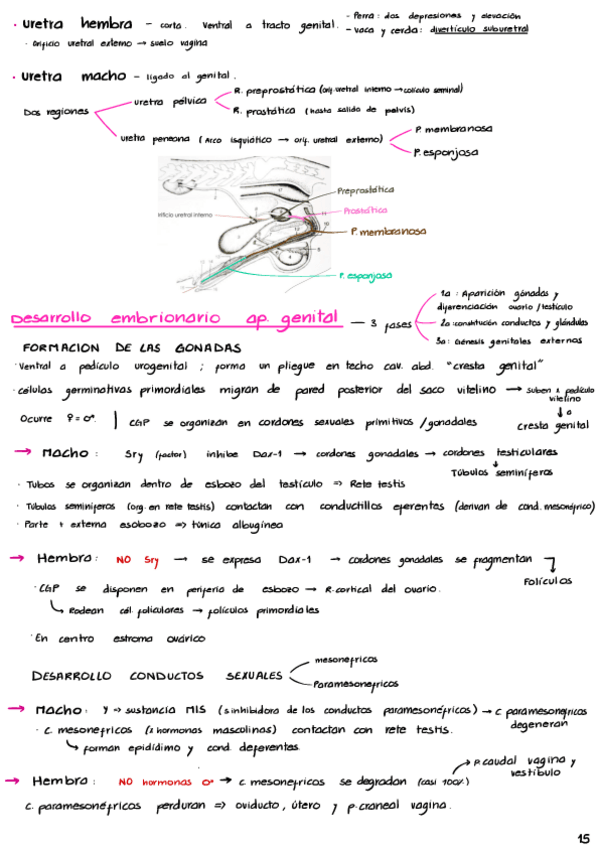 · Uretra hembra - corta. Ventral a tracto genital. - Perra: dos depresiones y elevación
- Vaca y cerda: divertículo suburetral
· Orificio uretral externo → suelo vagina
· Uretra macho - ligado al genital.
Dos regiones
uretra pélvica
R. preprostática (orif. uretral interno → colículo seminal)
R. prostática (hasta salida de pelvis)
uretra peneana (Arco isquiático → orif. uretral externo)
P. membranosa
P. esponjosa
Preprostática
orificio uretral interno
Prostática
P. membranosa
P. esponjosa
Desarrollo embrionario ap. genital — 3 fases
1a: Aparición gónadas y diferenciación ovario/testículo
2a: constitución conductos y glándulas
3a: Génesis genitales externos
FORMACION DE LAS GONADAS
· Ventral a pedículo urogenital ; forma un pliegue en techo cav. abd. "cresta genital"
· Células germinativas primordiales migran de pared posterior del saco vitelino → suben x pedículo vitelino
↓ a
cresta genital
Ocurre ♀ = ♂. | CGP se organizan en cordones sexuales primitivos / gonadales
→ Macho: Sry (factor) inhibe Dax-1 → cordones gonadales → cordones testiculares
↓
Túbulos seminíferos
· Tubos se organizan dentro de esbozo del testículo => Rete testis
· Túbulos seminíferos (org. en rete testis) contactan con conductillos eferentes (derivan de cond. mesonéfrico)
· Parte + externa esobozo => túnica albugínea
→ Hembra: NO Sry → se expresa Dax-1 → cordones gonadales se fragmentan
Folículos
· CGP se disponen en periferia de esbozo → R. cortical del ovario.
↳ Rodean cél. foliculares → folículos primordiales
· En centro estroma ovárico
DESARROLLO CONDUCTOS SEXUALES
mesonéfricos
Paramesonefricos
→ Macho: Y => sustancia MIS (s inhibidora de los conductos paramesonéfricos) → c. paramesonefricos degeneran
· C. mesonefricos (x hormonas masculinas) contactan con rete testis.
↳ forman epidídimo y cond. deferentes.
→ Hembra: NO hormonas ♂ → c. mesonefricos se degradan (casi 100%)
→ P. caudal vagina y vestíbulo
C. paramesonéfricos perduran => oviducto, útero y p. craneal vagina.
15